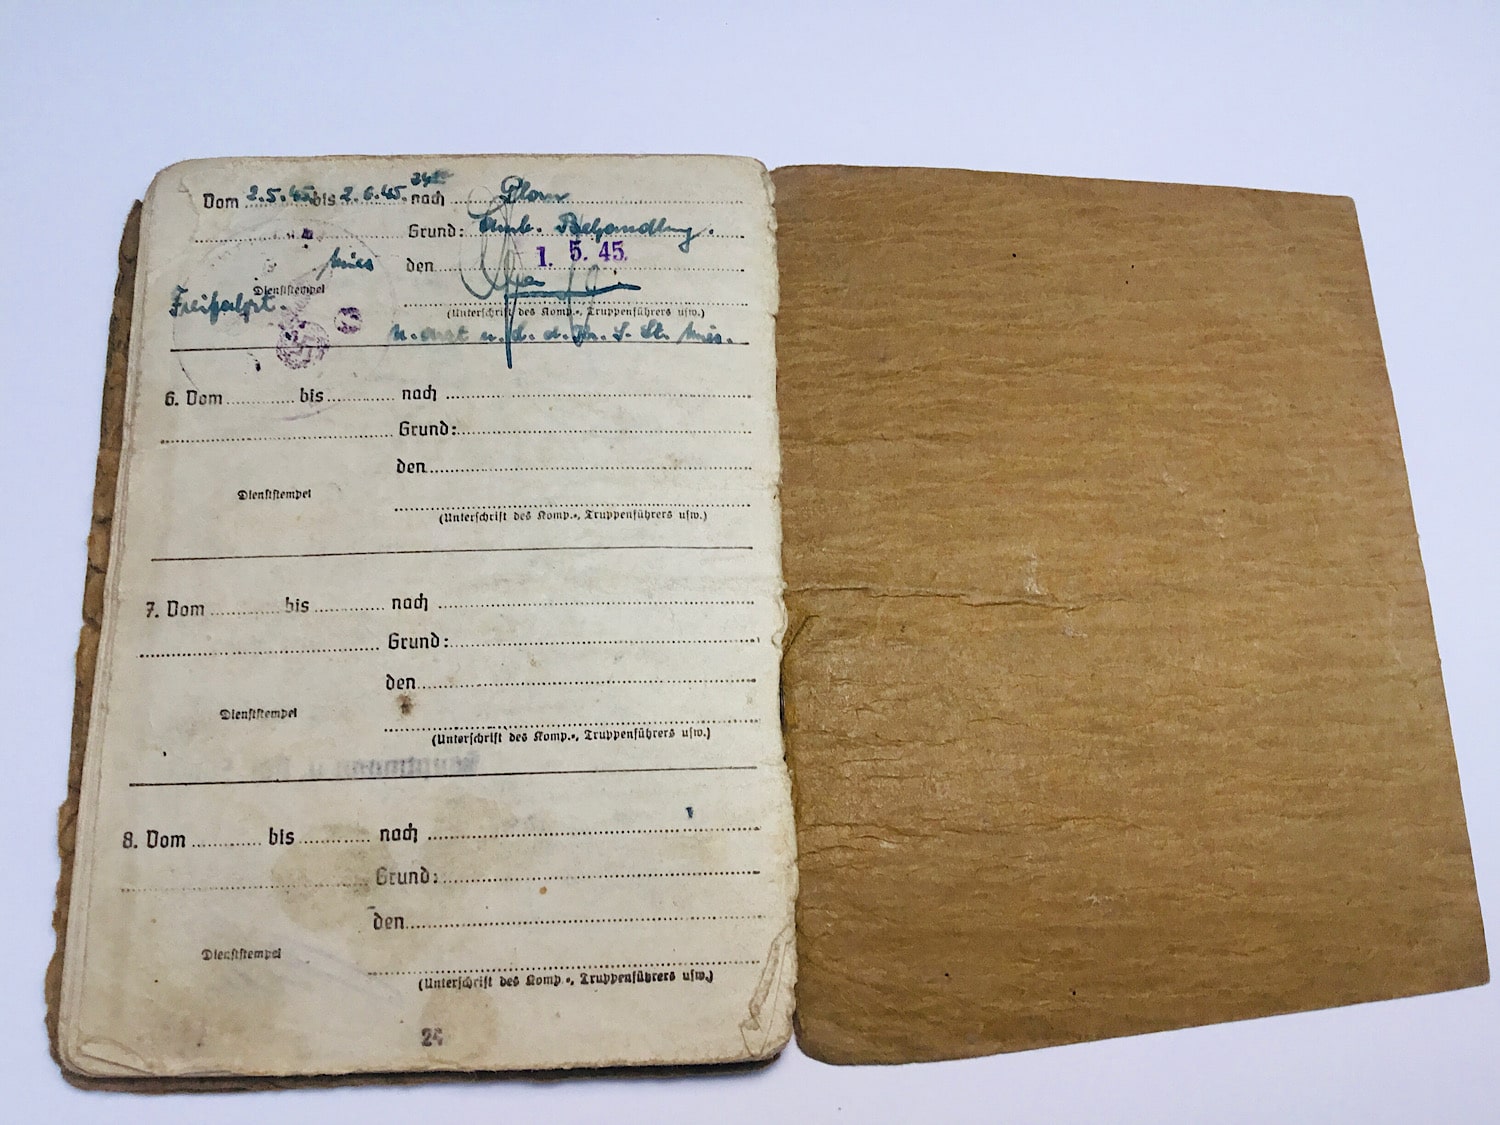 Vom 2.5.45. bis 2.6.45. 24°° nach
Grund: Amb. Behandlung.
Mies den 1. 5. 45.
Dienststempel
Freifahrt.
(Unterschrift des Komp.-, Truppenführers usw.)
6. Vom bis nach
Grund:
den
Dienststempel
(Unterschrift des Komp.-, Truppenführers usw.)
7. Vom bis nach
Grund:
den
Dienststempel
(Unterschrift des Komp.-, Truppenführers usw.)
8. Vom bis nach
Grund:
den
Dienststempel
(Unterschrift des Komp.-, Truppenführers usw.)
24